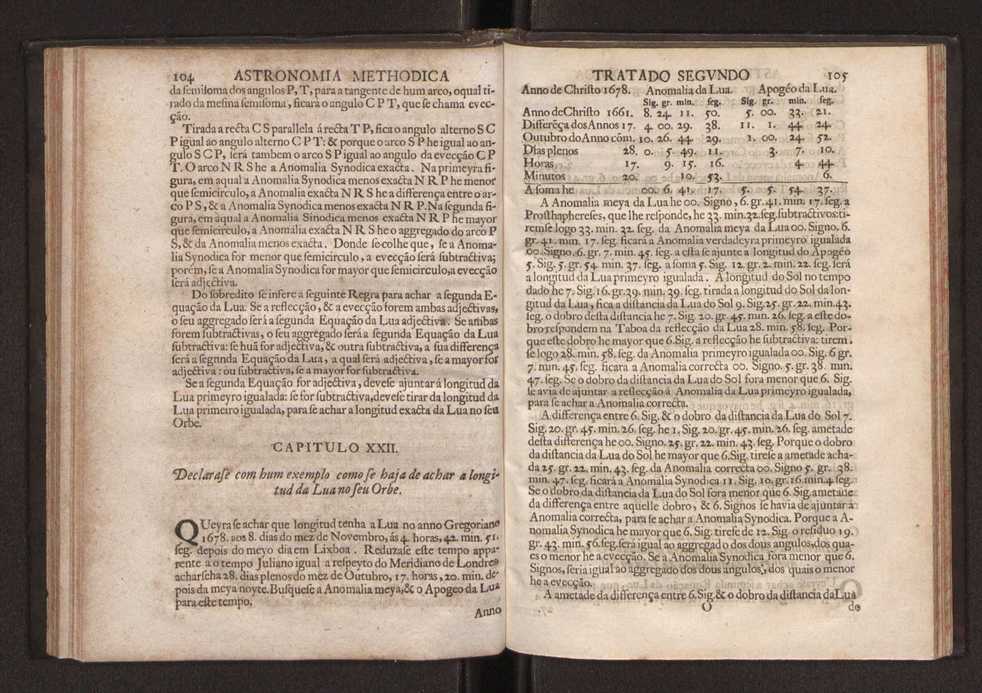 104 ASTRONOMIA METHODICA
da semisoma dos angulos P, T, para a tangente de hum arco, o qual ti-
rado da mesma semisoma, ficará o angulo C P T, que se chama evec-
ção.
Tirada a recta C S parallela á recta T P, fica o angulo alterno S C
P igual ao angulo alterno C P T: & porque o arco S P he igual ao an-
gulo S C P, será tambem o arco S P igual ao angulo da evecção C P
T. O arco N R S he a Anomalia Synodica exacta. Na primeyra fi-
gura, em a qual a Anomalia Synodica menos exacta N R P he menor
que semicirculo, a Anomalia exacta N R S he a differença entre o ar-
co P S, & a Anomalia Synodica menos exacta N R P. Na segunda fi-
gura, em aqual a Anomalia Sinodica menos exacta N R P he mayor
que semicirculo, a Anomalia exacta N R S he o aggregado do arco P
S, & da Anomalia menos exacta. Donde se colhe que, se a Anoma-
lia Synodica for menor que semicirculo, a evecção será subtractiva;
porém, se a Anomalia Synodica for mayor que semicirculo, a evecção
será adjectiva.
Do sobredito se infere a seguinte Regra para achar a segunda E-
quação da Lua. Se a reflecção, & a evecção forem ambas adjectivas,
o seu aggregado será a segunda Equação da Lua adjectiva. Se ambas
forem subtractivas, o seu aggregado será a segunda Equação da Lua
subtractiva: se huã for adjectiva, & outra subtractiva, a sua differença
será a segunda Equação da Lua, a qual será adjectiva, se a mayor for
adjectiva: ou subtractiva, se a mayor for subtractiva.
Se a segunda Equação for adjectiva, devese ajuntar á longitud da
Lua primeyro igualada: se for subtractiva, devese tirar da longitud da
Lua primeiro igualada, para se achar a longitud exacta da Lua no seu
Orbe.
CAPITULO XXII.
Declarase com hum exemplo como se haja de achar a longi-
tud da Lua no seu Orbe.
QUeyra se achar que longitud tenha a Lua no anno Gregoriano
1678. aos 8. dias do mez de Novembro, ás 4. horas, 42. min. 51.
seg. depois do meyo dia em Lixboa. Reduzase este tempo appa-
rente a o tempo Juliano igual a respeyto do Meridiano de Londres
acharseha 28. dias plenos do mez de Outubro, 17. horas, 20. min. de-
pois da meya noyte. Busquese a Anomalia meya, & o Apogeo da Lua
para este tempo.
Anno
TRATADO SEGVNDO 105
Anno de Christo 1678. Anomalia da Lua. Apogéo da Lua.
Sig. gr. min. seg. Sig. gr. min. seg.
Anno de Christo 1661. 8. 24. 11. 50. 5. 00. 33. 21.
Differẽça dos Annos 17. 4. 00. 29. 38. 11. 1. 44. 24.
Outubro do Anno cõm. 10. 26. 44. 29. 1. 00. 24. 52.
Dias plenos 28. 0. 5. 49. 11. 3. 7. 10.
Horas 17. 9. 15. 16. 4. 44.
Minutos 20. 10. 53. 6.
A soma he 00. 6. 41. 17. 5. 5. 54. 37.
A Anomalia meya da Lua he 00. Signo, 6. gr. 41. min. 17. seg. a
Prosthaphereses, que lhe responde, he 33. min. 32. seg. subtractivos: ti-
remse logo 33. min. 32. seg. da Anomalia meya da Lua 00. Signo. 6.
gr. 41. min. 17. seg. ficará a Anomalia verdadeyra primeyro igualada
00. Signo. 6. gr. 7. min. 45. seg. a esta se ajunte a longitud do Apogéo
5. Sig. 5. gr. 54. min. 37. seg. a soma 5. Sig. 12. gr. 2. min. 22. seg. será
a longitud da Lua primeyro igualada. A longitud do Sol no tempo
dado he 7. Sig. 16. gr. 39. min. 39. seg. tirada a longitud do Sol da lon-
gitud da Lua, fica a distancia da Lua do Sol 9. Sig. 25. gr. 22. min. 43.
seg. o dobro desta distancia he 7. Sig. 20. gr. 45. min. 26. seg. a este do-
bro respondem na Taboa da reflecção da Lua 28. min. 58. seg. Por-
que este dobro he mayor que 6. Sig. a reflecção he subtractiva: tirem
se logo 28. min. 58. seg. da Anomalia primeyro igualada 00. Sig. 6 gr.
7. min. 45. seg. ficará a Anomalia correcta 00. Signo. 5. gr. 38. min.
47. seg. Se o dobro da distancia da Lua do Sol fora menor que 6. Sig.
se avia de ajuntar a reflecção á Anomalia da Lua primeyro igualada,
para se achar a Anomalia correcta.
A differença entre 6. Sig. & o dobro da distancia da Lua do Sol 7.
Sig. 20. gr. 45. min. 26. seg. he 1. Sig. 20. gr. 45. min. 26. seg. ametade
desta differença he 00. Signo. 25. gr. 22. min. 43. seg. Porque o dobro
da distancia da Lua do Sol he mayor que 6. Sig. tirese a ametade acha-
da 25. gr. 22. min. 43. seg. da Anomalia correcta 00. Signo 5. gr. 38.
min. 47. seg. ficará a Anomalia Synodica 11. Sig. 10. gr. 16. min. 4. seg.
Se o dobro da distancia da Lua do Sol fora menor que 6. Sig. ametade
da differença entre aquelle dobro, & 6. Signos se havia de ajuntar á
Anomalia correcta, para se achar a Anomalia Synodica. Porque a A-
nomalia Synodica he mayor que 6. Sig. tirese de 12. Sig. o residuo 19.
gr. 43. min. 56. seg. será igual ao aggregado dos dous angulos, dos qua-
es o menor he a evecção. Se a Anomalia Synodica fora menor que 6.
Signos, seria igual ao aggregado dos dous angulos, dos quais o menor
he a evecção.
A ametade da differença entre 6. Sig. & o dobro da distancia da Lua
O do